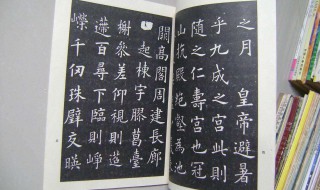 之月 皇帝避暑
乎九成之宮此則
隨之仁壽宮也冠
山抗殿絕壑為池
闕高閣周建長廊
四起棟宇膠葛臺
榭參差仰視則迢
遰百尋下臨則崢
嶸千仞珠璧交暎